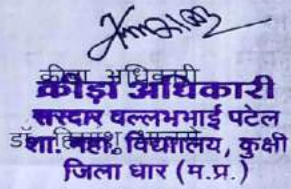 क्रीड़ा अधिकारी
क्रीड़ा अधिकारी
सरदार वल्लभभाई पटेल
डॉ.
शा. महा. विद्यालय, कुक्षी
जिला धार (म.प्र.)